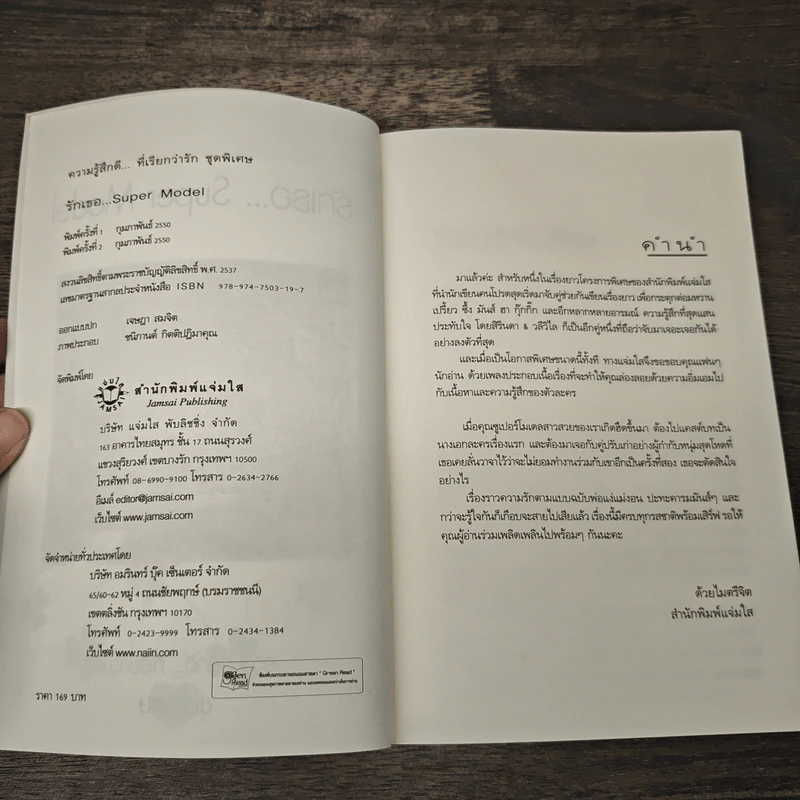 ความรู้สึกดี... ที่เรียกว่ารัก ชุดพิเศษ
รักเธอ...Super Model
พิมพ์ครั้งที่ 1 กุมภาพันธ์ 2550
พิมพ์ครั้งที่ 2 กุมภาพันธ์ 2550
สงวนลิขสิทธิ์ตามพระราชบัญญัติลิขสิทธิ์ พ.ศ. 2537
เลขมาตรฐานสากลประจำหนังสือ ISBN 978-974-7503-19-7
ออกแบบปก เจษฎา สมจิต
ภาพประกอบ ชนิกานต์ กิตติปฎิมาคุณ
จัดพิมพ์โดย
สำนักพิมพ์แจ่มใส
Jamsai Publishing
บริษัท แจ่มใส พับลิชชิ่ง จำกัด
163 อาคารไทยสมุทร ชั้น 17 ถนนสุรวงศ์
แขวงสุริยวงศ์ เขตบางรัก กรุงเทพฯ 10500
โทรศัพท์ 08-6990-9100 โทรสาร 0-2634-2766
อีเมล์ editor@jamsai.com
เว็บไซต์ www.jamsai.com
จัดจำหน่ายทั่วประเทศโดย
บริษัท อมรินทร์ บุ๊ค เซ็นเตอร์ จำกัด
65/60-62 หมู่ 4 ถนนชัยพฤกษ์ (บรมราชชนนี)
เขตตลิ่งชัน กรุงเทพฯ 10170
โทรศัพท์ 0-2423-9999 โทรสาร 0-2434-1384
เว็บไซต์ www.naiin.com
Green Read
พิมพ์บนกระดาษถนอมสายตา "Green Read"
ราคา 169 บาท
คำนำ
มาแล้วค่ะ สำหรับหนึ่งในเรื่องยาวโครงการพิเศษของสำนักพิมพ์แจ่มใส
ที่นำนักเขียนคนโปรดสุดเริ่ดมาจับคู่ช่วยกันเขียนเรื่องยาว เพื่อกระตุกต่อมหวาน
เปรี้ยว ซึ้ง มันส์ ฮา กุ๊กกิ๊ก และอีกหลากหลายอารมณ์ ความรู้สึกที่สุดแสน
ประทับใจ โดยสิรินดา & วลีวิไล ก็เป็นอีกคู่หนึ่งที่ถือว่าจับมาเจอะเจอกันได้
อย่างลงตัวที่สุด
และเมื่อเป็นโอกาสพิเศษขนาดนี้ทั้งที ทางแจ่มใสจึงขอขอบคุณแฟนๆ
นักอ่าน ด้วยเพลงประกอบเนื้อเรื่องที่จะทำให้คุณล่องลอยด้วยความอิ่มเอมไป
กับเนื้อหาและความรู้สึกของตัวละคร
เมื่อคุณซูเปอร์โมเดลสาวสวยของเราเกิดฮึดขึ้นมา ต้องไปแคสต์บทเป็น
นางเอกละครเรื่องแรก และต้องมาเจอกับคู่ปรับเก่าอย่างผู้กำกับหนุ่มสุดโหดที่
เธอเคยลั่นวาจาไว้ว่าจะไม่ยอมทำงานร่วมกับเขาอีกเป็นครั้งที่สอง เธอจะตัดสินใจ
อย่างไร
เรื่องราวความรักตามแบบฉบับพ่อแง่แม่งอน ปะทะคารมมันส์ๆ และ
กว่าจะรู้ใจกันก็เกือบจะสายไปเสียแล้ว เรื่องนี้มีครบทุกรสชาติพร้อมเสิร์ฟ รอให้
คุณผู้อ่านร่วมเพลิดเพลินไปพร้อมๆ กันนะคะ
ด้วยไมตรีจิต
สำนักพิมพ์แจ่มใส